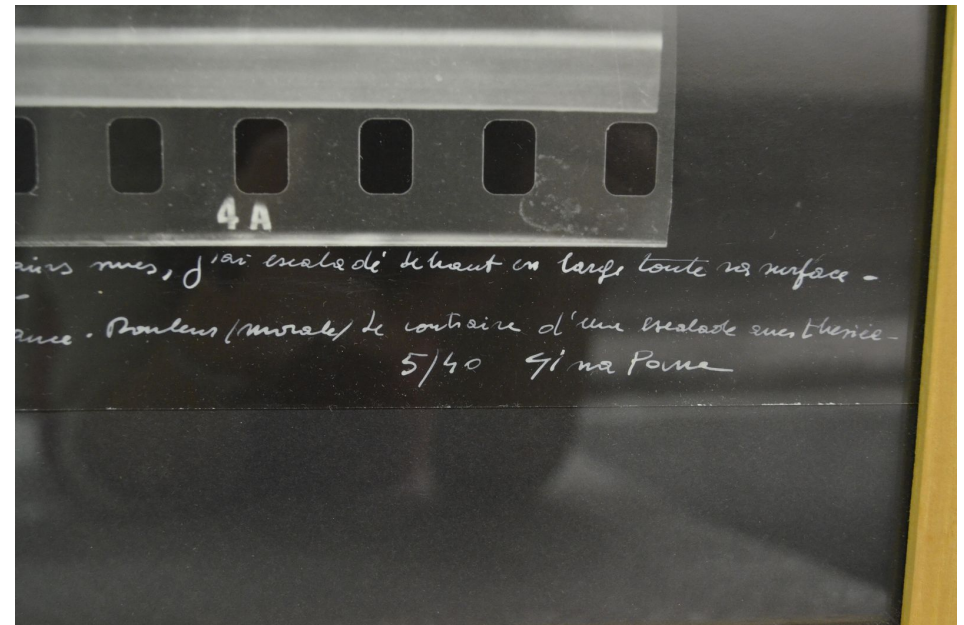 4A
mains nues, j'ai escaladé de haut en large toute sa surface -
Douleurs/morale/le contraire d'une escalade anesthésiée -
5/40 Gina Pane